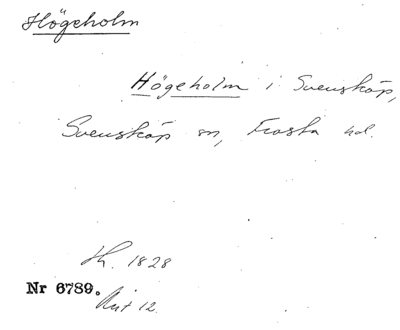 Högeholm
Högeholm i Svensköp,
Svensköp sn, Frosta hd.
Lh. 1828
Nr 6789.
Akt 12.